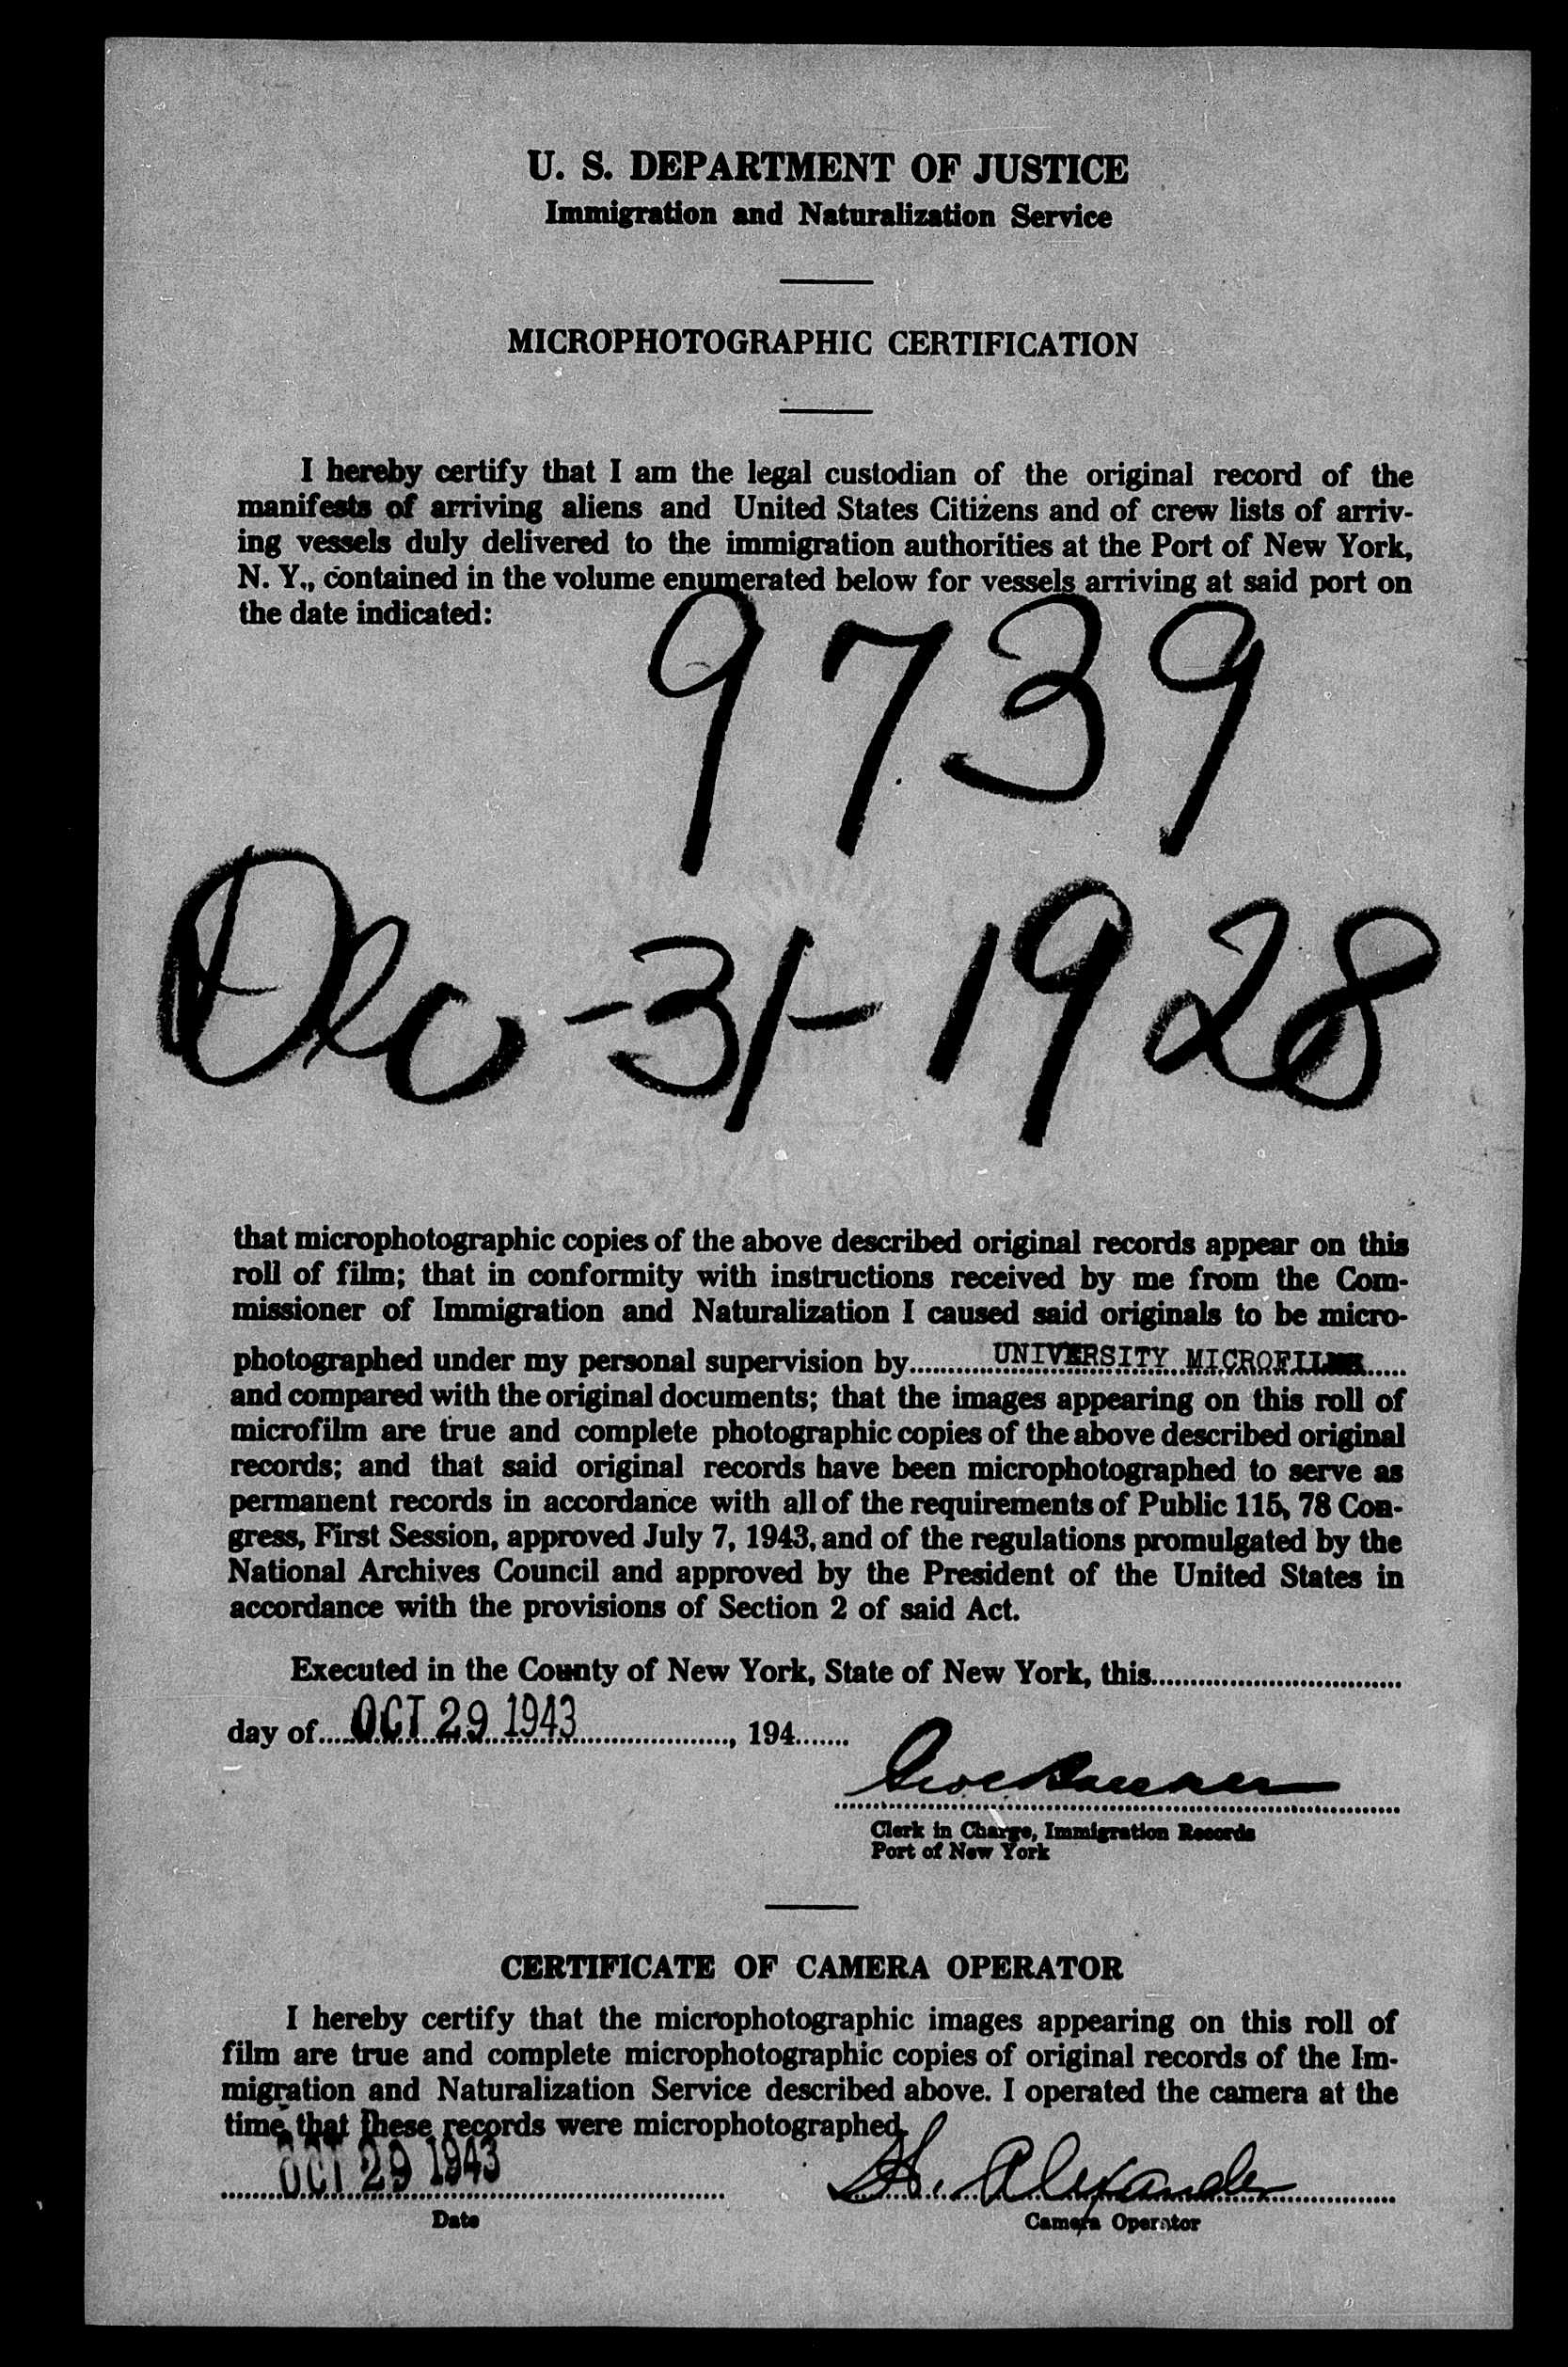 U. S. DEPARTMENT OF JUSTICE
Immigration and Naturalization Service
MICROPHOTOGRAPHIC CERTIFICATION
I hereby certify that I am the legal custodian of the original record of the
manifests of arriving aliens and United States Citizens and of crew lists of arriv-
ing vessels duly delivered to the immigration authorities at the Port of New York,
N. Y., contained in the volume enumerated below for vessels arriving at said port on
the date indicated:
9739
Dec-31-1928
that microphotographic copies of the above described original records appear on this
roll of film; that in conformity with instructions received by me from the Com-
missioner of Immigration and Naturalization I caused said originals to be micro-
photographed under my personal supervision by UNIVERSITY MICROFILMS
and compared with the original documents; that the images appearing on this roll of
microfilm are true and complete photographic copies of the above described original
records; and that said original records have been microphotographed to serve as
permanent records in accordance with all of the requirements of Public 115, 78 Con-
gress, First Session, approved July 7, 1943, and of the regulations promulgated by the
National Archives Council and approved by the President of the United States in
accordance with the provisions of Section 2 of said Act.
Executed in the County of New York, State of New York, this
day of OCT 29 1943, 194
Clerk in Charge, Immigration Records
Port of New York
CERTIFICATE OF CAMERA OPERATOR
I hereby certify that the microphotographic images appearing on this roll of
film are true and complete microphotographic copies of original records of the Im-
migration and Naturalization Service described above. I operated the camera at the
time that these records were microphotographed.
OCT 29 1943 H. Alexander
Date Camera Operator